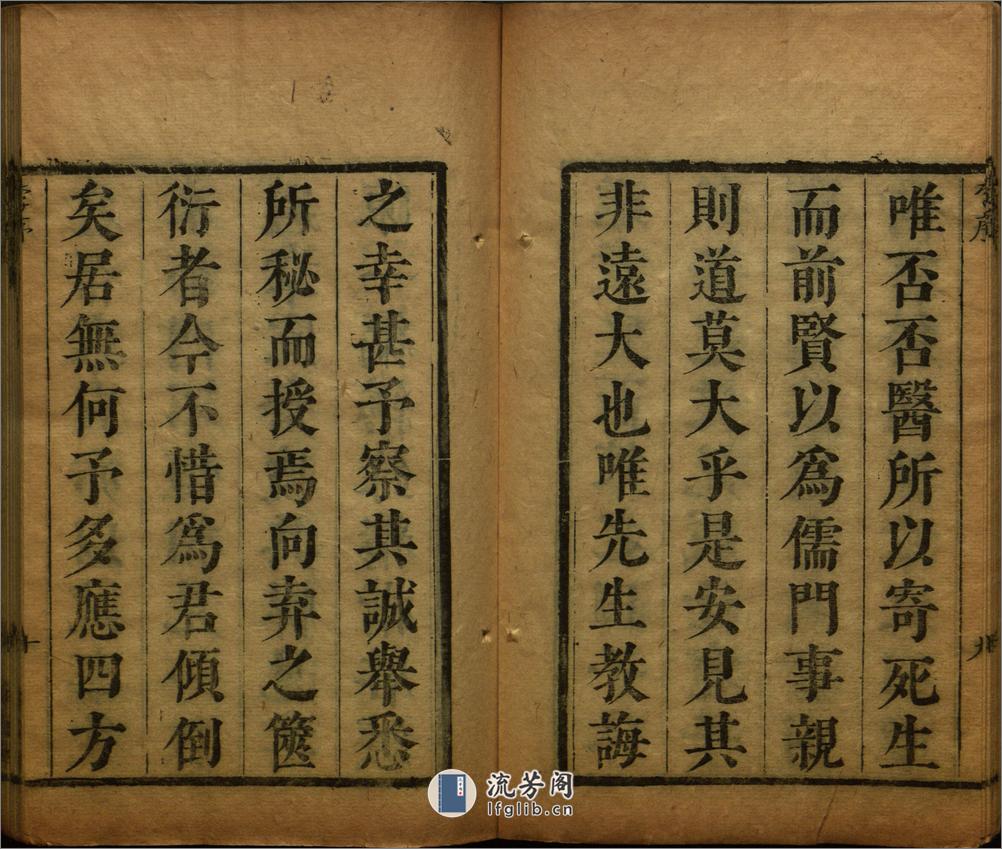 唯否否醫所以寄死生
而前賢以爲儒門事親
則道莫大乎是安見其
非遠大也唯先生教誨
之幸甚予察其誠舉悉
所秘而授焉向弆之篋
衍者今不惜爲君傾倒
矣居無何予多應四方
流芳阁
lfglib.cn